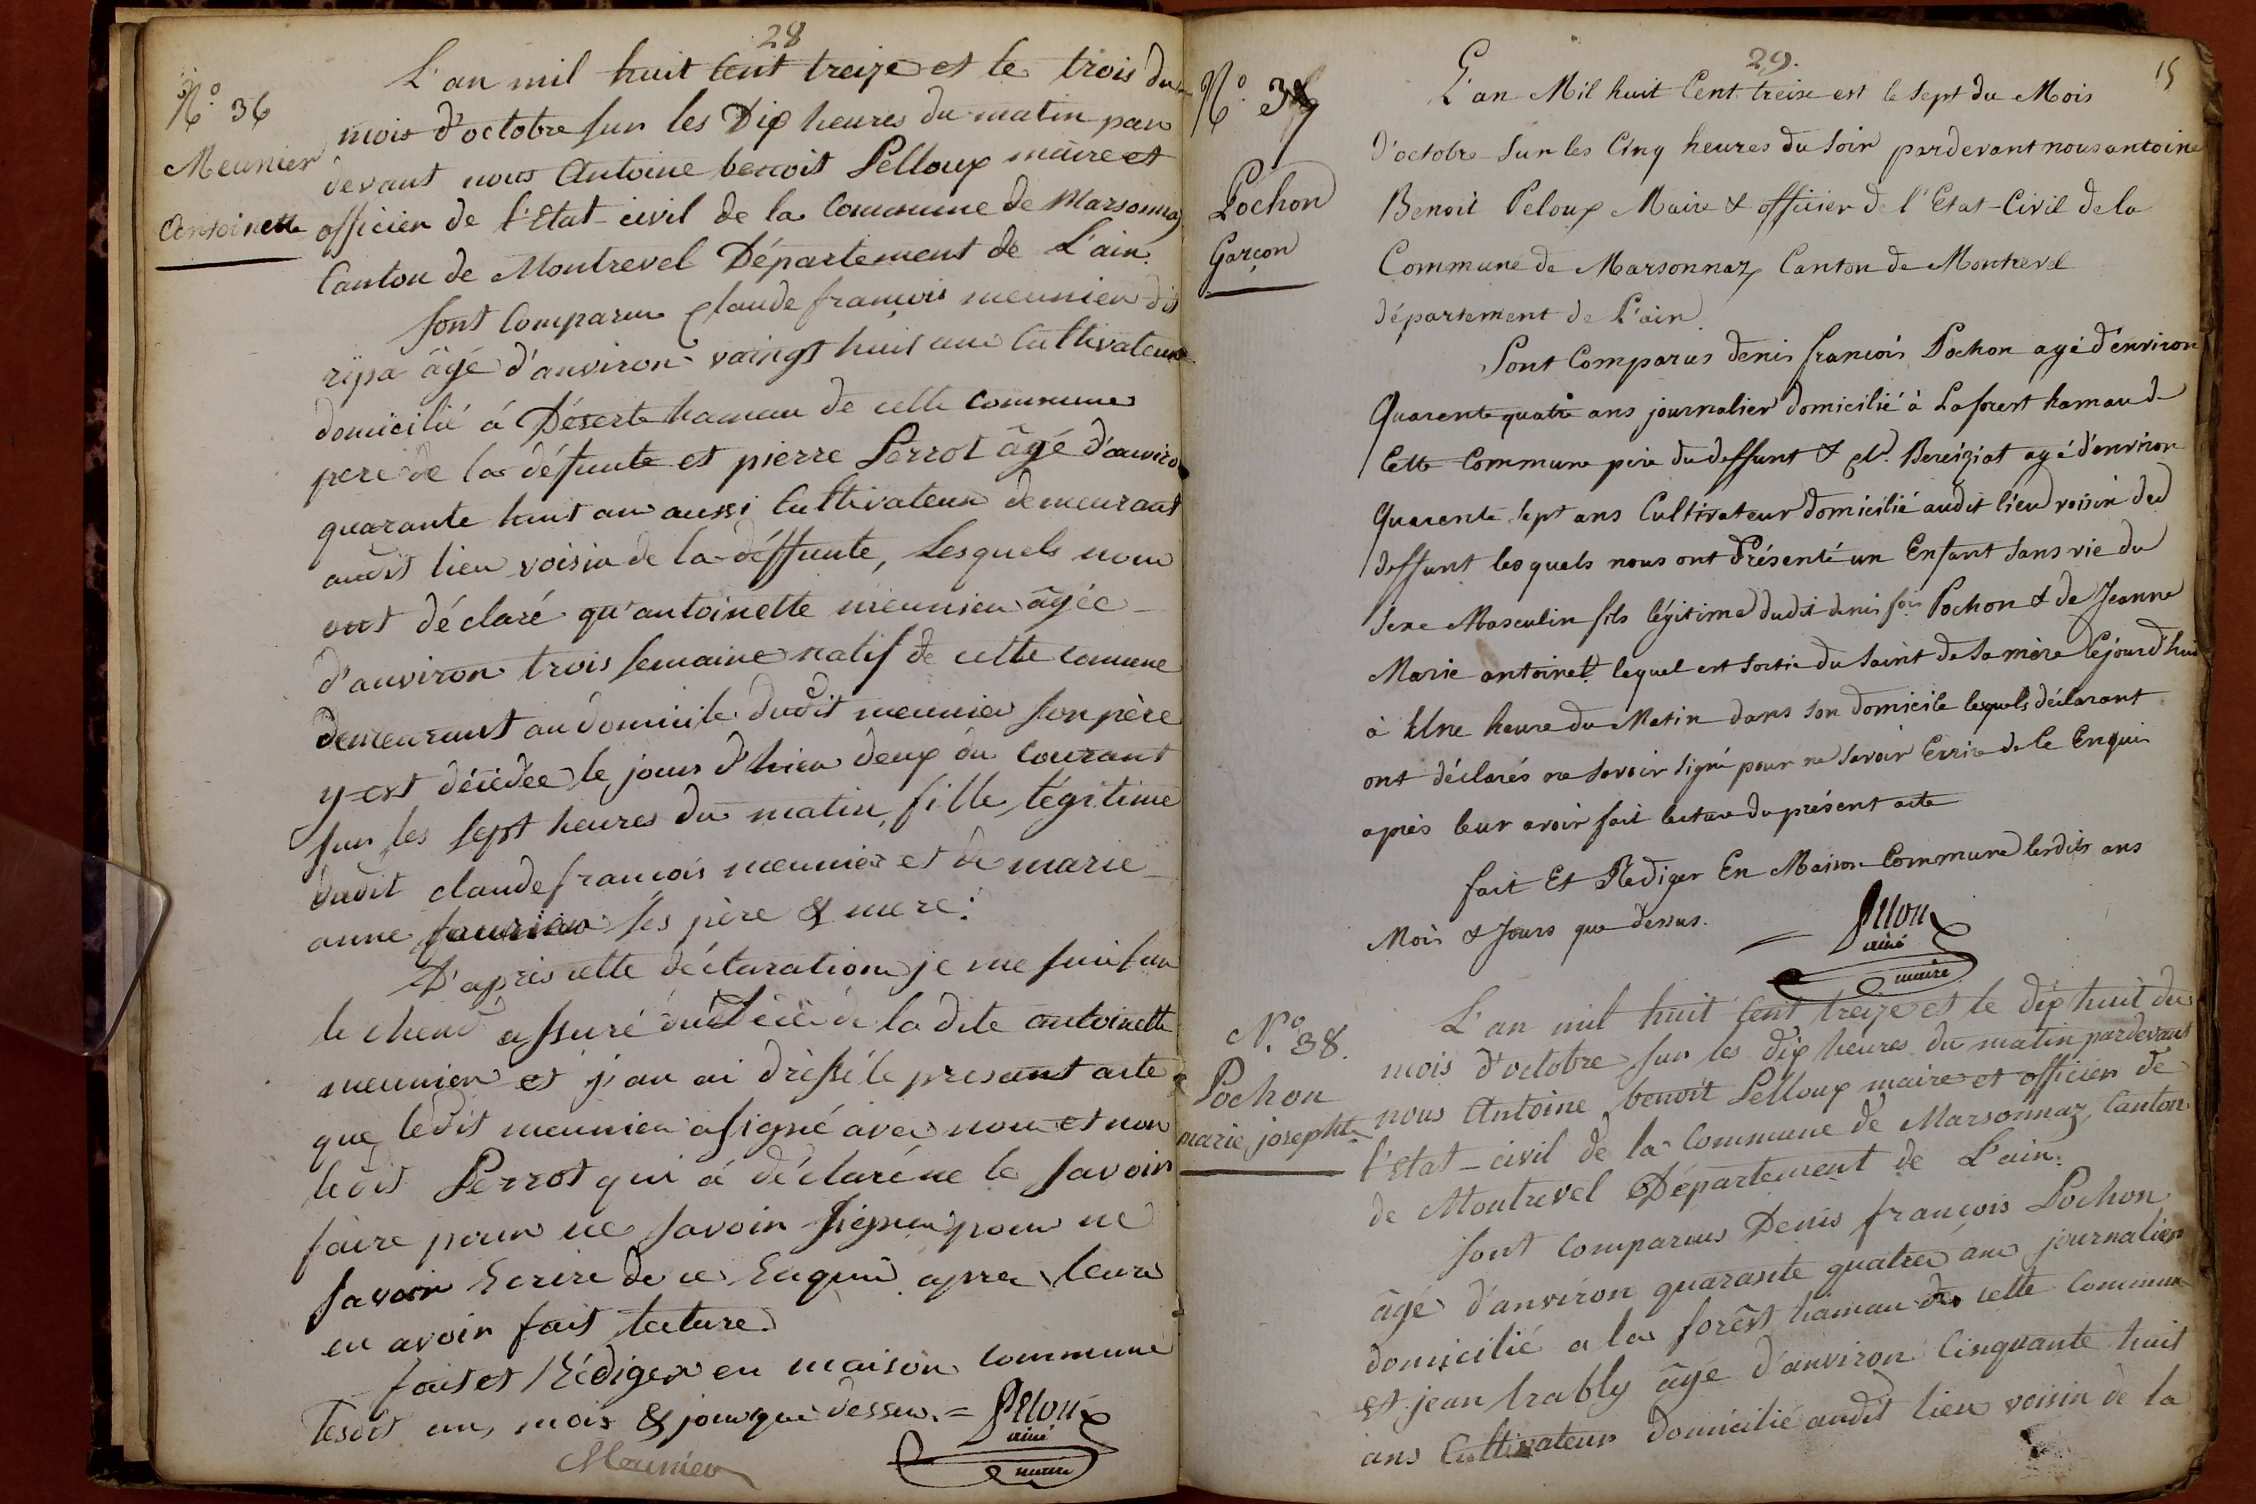 28
N.o 36
Meunier
Antoinette
L'an mil huit cent treize et le trois du
mois d'octobre sur les Dix heures du matin par
devant nous Antoine benoit Pelloux maire et
officier de l'Etat-civil de la Commune de Marsonnaz
Canton de Montrevel Département de L'ain.
sont comparu Claude françois meunier dit
ripa âgé d'anviron vaingt huit ans Cultivateur
domicilié á Déserte hameau de cette commune
pere de la défunte et pierre Perrot âgé d'anviron
quarante huit an aussi Cultivateur demeurant
audit lieu voisin de la déffunte, Lesquels nous
ont déclaré qu'antoinette meunier âgée
d'anviron trois semaine natif de cette comune
demeurant au domicile dudit meunier son père
y est décédée le jour d'hier deux du courant
sur les sept heures du matin, fille légitime
dudit claude françois meunier et de marie
anne ses père & mere:
D'après cette déclaration je me suis sur
le cham assuré du décé de la dite antoinette
meunier et j'an ai dressé le presant acte
que ledit meunier a signé avec nous et non
ledit Perrot qui á déclaré ne le savoir
faire pour ne savoir signer pour ne
savoir Ecrire de ce Enquis apres leur
en avoir fait lecture.
fait et Rédiger en maison commune
lesdit an, mois & jour que dessus. = Peloux
ainé
maire
Meunier
29.
15
N.o 37
Pochon
Garçon
L'an Mil huit Cent treize est le Sept du Mois
d'octobre Sur les Cinq heures du Soir pardevant nous antoine
Benoit Peloux Maire & officier de l'Etat-Civil de la
Commune de Marsonnaz Canton de Montrevel
département de L'ain.
Sont Comparus denis françois Pochon agé d'environ
Quarente quatre ans journalier domicilié à Laforest hamau de
Cette Commune père du deffunt & Cl. Bereiziat agé d'environ
Quarente Sept ans Cultivateur domicilié audit lieu voisin du
deffunt lesquels nous ont Présenté un Enfant Sans vie du
Sexe Masculin fils légitime dudit denis fois Pochon & de Jeanne
Marie antoinet lequel est Sortie du Saint de Sa mère Cejourd'hui
à Une heure du Matin dans Son domicile lesquels déclarant
ont déclarés ne Savoir Signé pour ne Savoir Ecrire de Ce Enquis
après leur avoir fait lecture du présent acte
fait Et Rediger En Maison Commune lesdits ans
Mois & Jours que dessus. Peloux
ainé
maire
N.o 38.
Pochon
marie josephte
L'an mil huit cent treize et le dix huit du
mois d'octobre sur les dix heures du matin pardevant
nous Antoine benoit Pelloux maire et officier de
l'etat-civil de la Commune de Marsonnaz, Canton
de Montrevel Département de L'ain.
sont comparus Denis françois Pochon
âgé d'anviron quarante quatre ans journalier
domicilié a la forêst hameau de cette commune
et jean trably âgé d'anviron Cinquante huit
ans Cultivateur domicilié audit lieu voisin de la